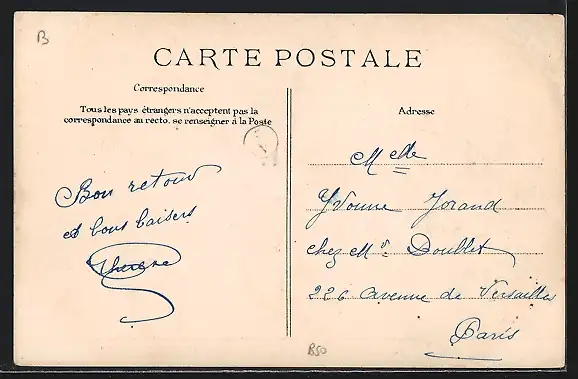 B
CARTE POSTALE
Correspondance
Tous les pays étrangers n'acceptent pas la
correspondance au recto. se renseigner à la Poste
Adresse
Bon retour
et bons baisers
Therese
Melle
Yvonne Jorand
chez Mr Doullet
226 avenue de Versailles
Paris
B50